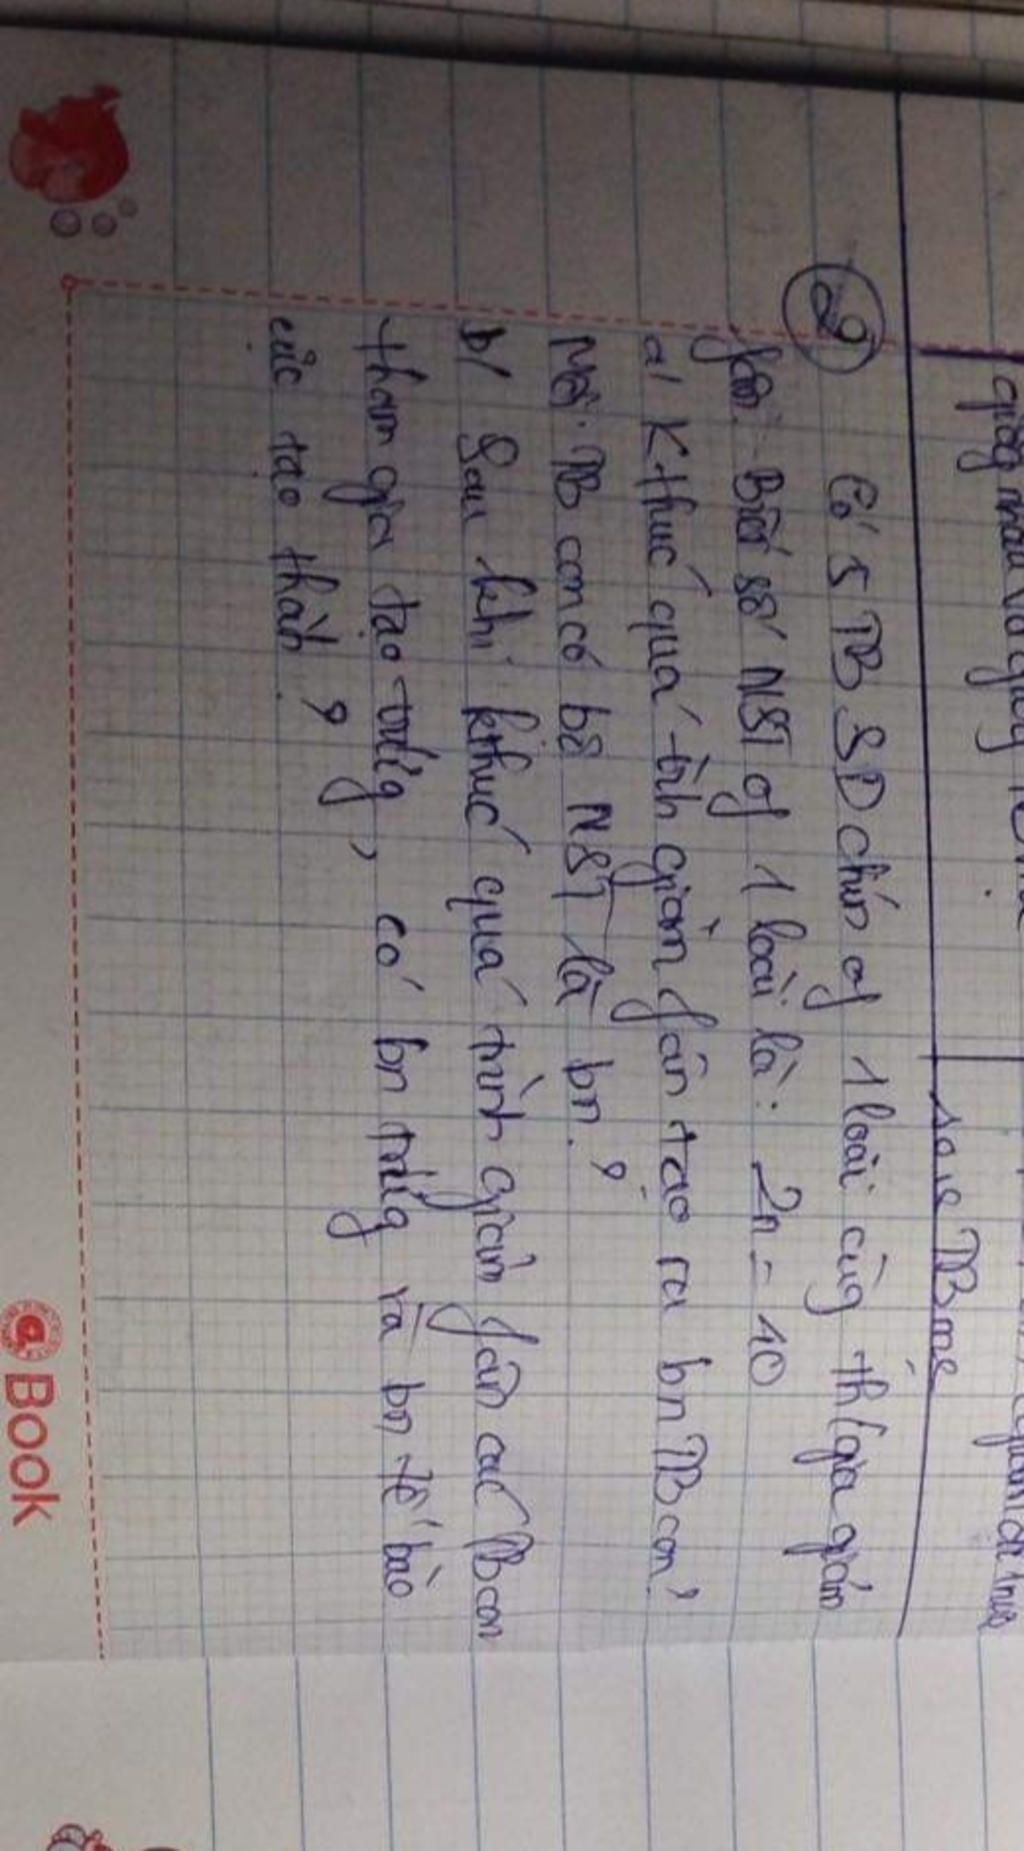 giống nhau và giống
sane TB mẹ
2 Có 5 TB SD chín of 1 loài cùng th/gia giảm
fân. Biết số NST of 1 loài là: 2n = 10
a/ K thúc quá trìh giảm fân tạo ra bn TB con?
Mỗi TB con có bộ NST là bn?
b/ Sau khi kthúc quá trình giảm fân các TB con
tham gia tạo trứng, có bn trứng và bn tế bào
cực tạo thàh?
Book